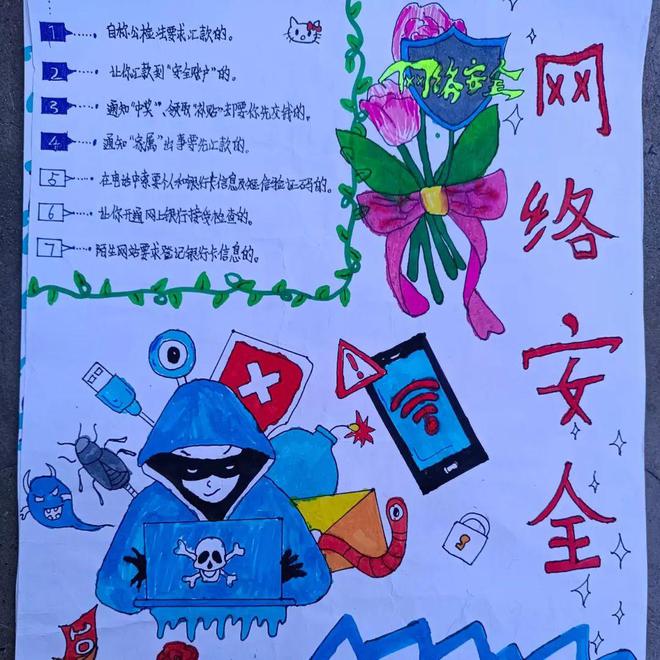 1 自称公检法要求汇款的。
2 让你汇款到“安全账户”的。
3 通知“中奖”、领取“补贴”却要你先交钱的。
4 通知“家属”出事要先汇款的。
5 在电话中索要个人和银行卡信息及短信验证码的。
6 让你开通网上银行接受检查的。
7 陌生网站要求登记银行卡信息的。
网络安全
网络安全
10